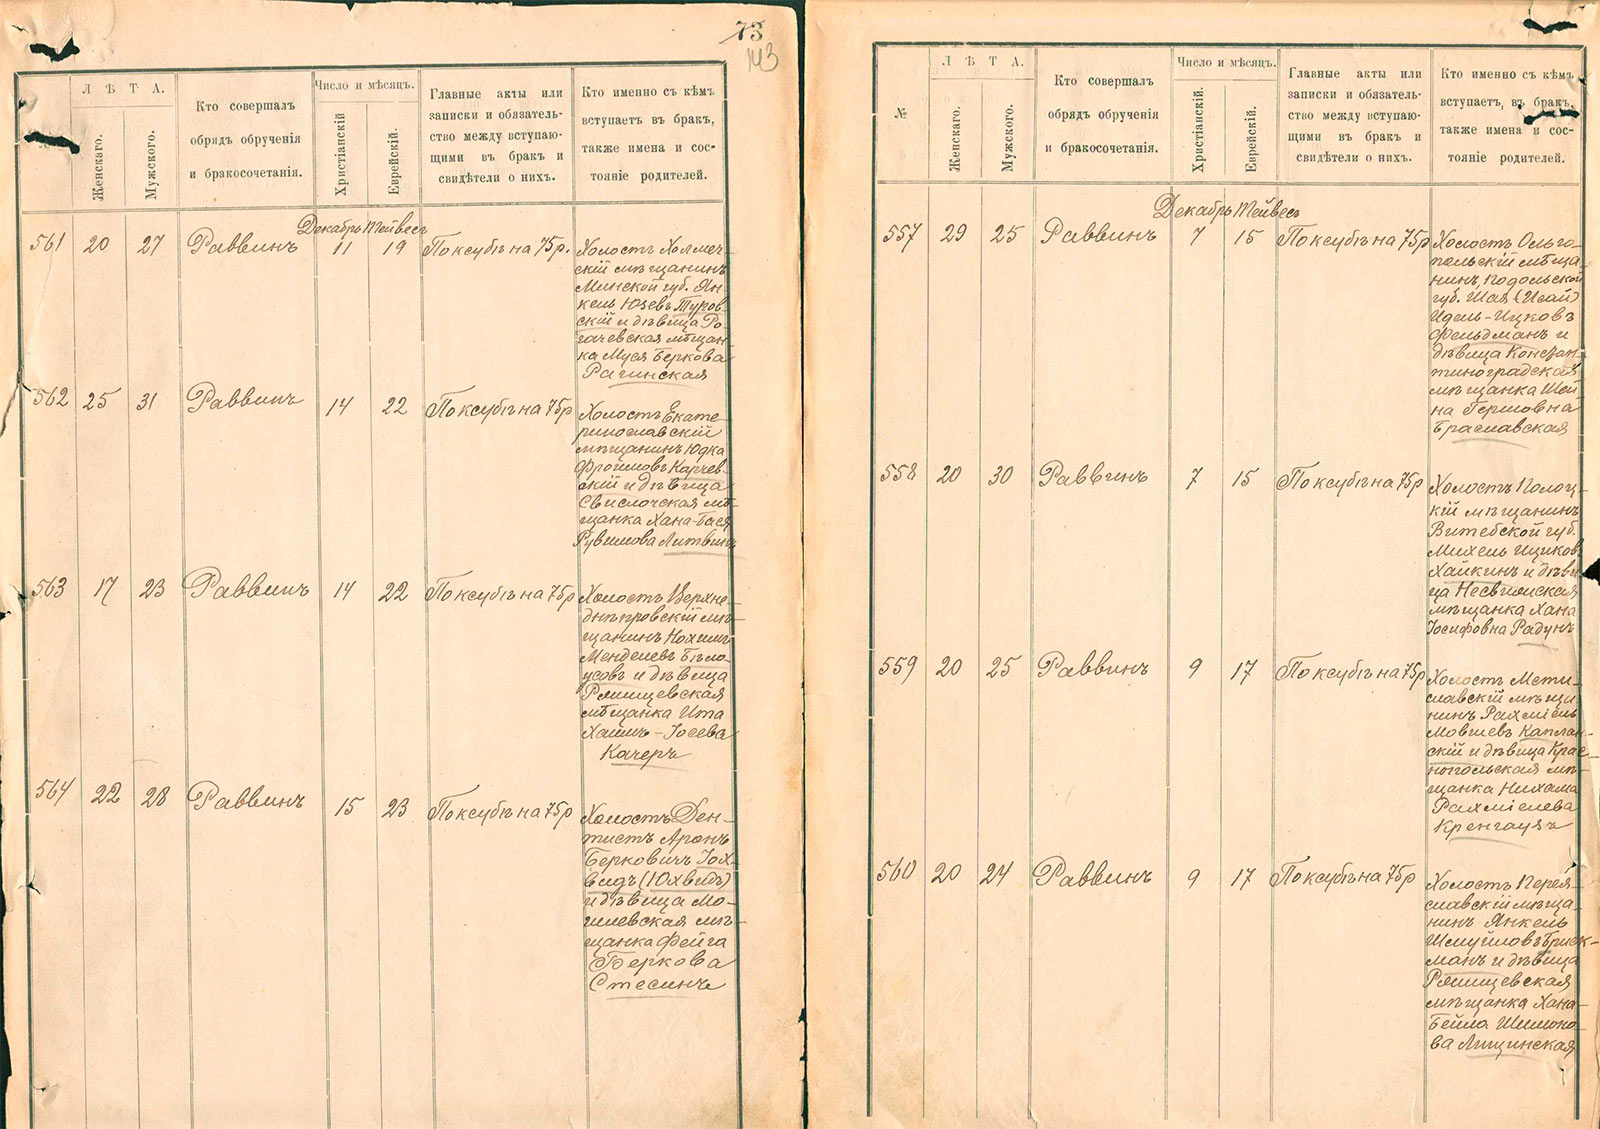 73
143
Л Ѣ Т А.
Женскаго.
Мужского.
Кто совершалъ
обрядъ обрученія
и бракосочетанія.
Число и мѣсяцъ.
Христіанскій
Еврейскій.
Главные акты или
записки и обязатель-
ство между вступаю-
щими въ бракъ и
свидѣтели о нихъ.
Кто именно съ кѣмъ
вступаетъ въ бракъ,
также имена и сос-
тояніе родителей.
Декабрь Тейвесъ
561 20 27 Раввинъ 11 19 По ксубѣ на 75 р.
Холостъ Холмеч-
скій мѣщанинъ
Минской губ. Ян-
кель Юзевъ Туров-
скій и дѣвица Ро-
гачевская мѣщан-
ка Муся Беркова
Рагинская
562 25 31 Раввинъ 14 22 По ксубѣ на 75 р
Холостъ Екате-
ринославскій
мѣщанинъ Юдка
Фроимовъ Карчев-
скій и дѣвица
Свислочская мѣ-
щанка Хана-Бася
Рувимова Литвинъ
563 17 23 Раввинъ 14 22 По ксубѣ на 75 р
Холостъ Верхне-
днѣпровскій мѣ-
щанинъ Нохимъ
Менделевъ Бѣло-
усовъ и дѣвица
Ряшищевская
мѣщанка Ита
Хаимъ-Іосева
Качеръ
564 22 28 Раввинъ 15 23 По ксубѣ на 75 р
Холостъ Ден-
тистъ Аронъ
Берковичъ Іох-
видъ (Юхвидъ)
и дѣвица Мо-
гилевская мѣ-
щанка Фейга
Беркова
Стесинъ
№
Л Ѣ Т А.
Женскаго.
Мужского.
Кто совершалъ
обрядъ обрученія
и бракосочетанія.
Число и мѣсяцъ.
Христіанскій.
Еврейскій.
Главные акты или
записки и обязатель-
ство между вступаю-
щими въ бракъ и
свидѣтели о нихъ.
Кто именно съ кѣмъ
вступаетъ, въ бракъ,
также имена и сос-
тояніе родителей.
Декабрь Тейвесъ
557 29 25 Раввинъ 7 15 По ксубѣ на 75 р
Холостъ Ольго-
польскій мѣща-
нинъ, Подольской
губ. Шая (Исай)
Идель-Ицковъ
Фельдманъ и
дѣвица Констан-
тиноградская
мѣщанка Шей-
на Гершовна
Браславская
558 20 30 Раввинъ 7 15 По ксубѣ на 75 р
Холостъ Полоц-
кій мѣщанинъ
Витебской губ.
Михель Ициков
Хайкинъ и дѣви
ца Несвижская
мѣщанка Хана
Іосифовна Радунъ
559 20 25 Раввинъ 9 17 По ксубѣ на 75 р
Холостъ Мсти-
славскій мѣща-
нинъ Рахміель
Мовшевъ Каплан-
скій и дѣвица Крас-
нопольская мѣ-
щанка Нихама
Рахміелева
Кренгаузъ
560 20 24 Раввинъ 9 17 По ксубѣ на 75 р
Холостъ Перея-
славскій мѣща-
нинъ Янкель
Шмуйловъ Бриск-
манъ и дѣвица
Ряшищевская
мѣщанка Хана-
Бейла Шимоно-
ва Лищинская